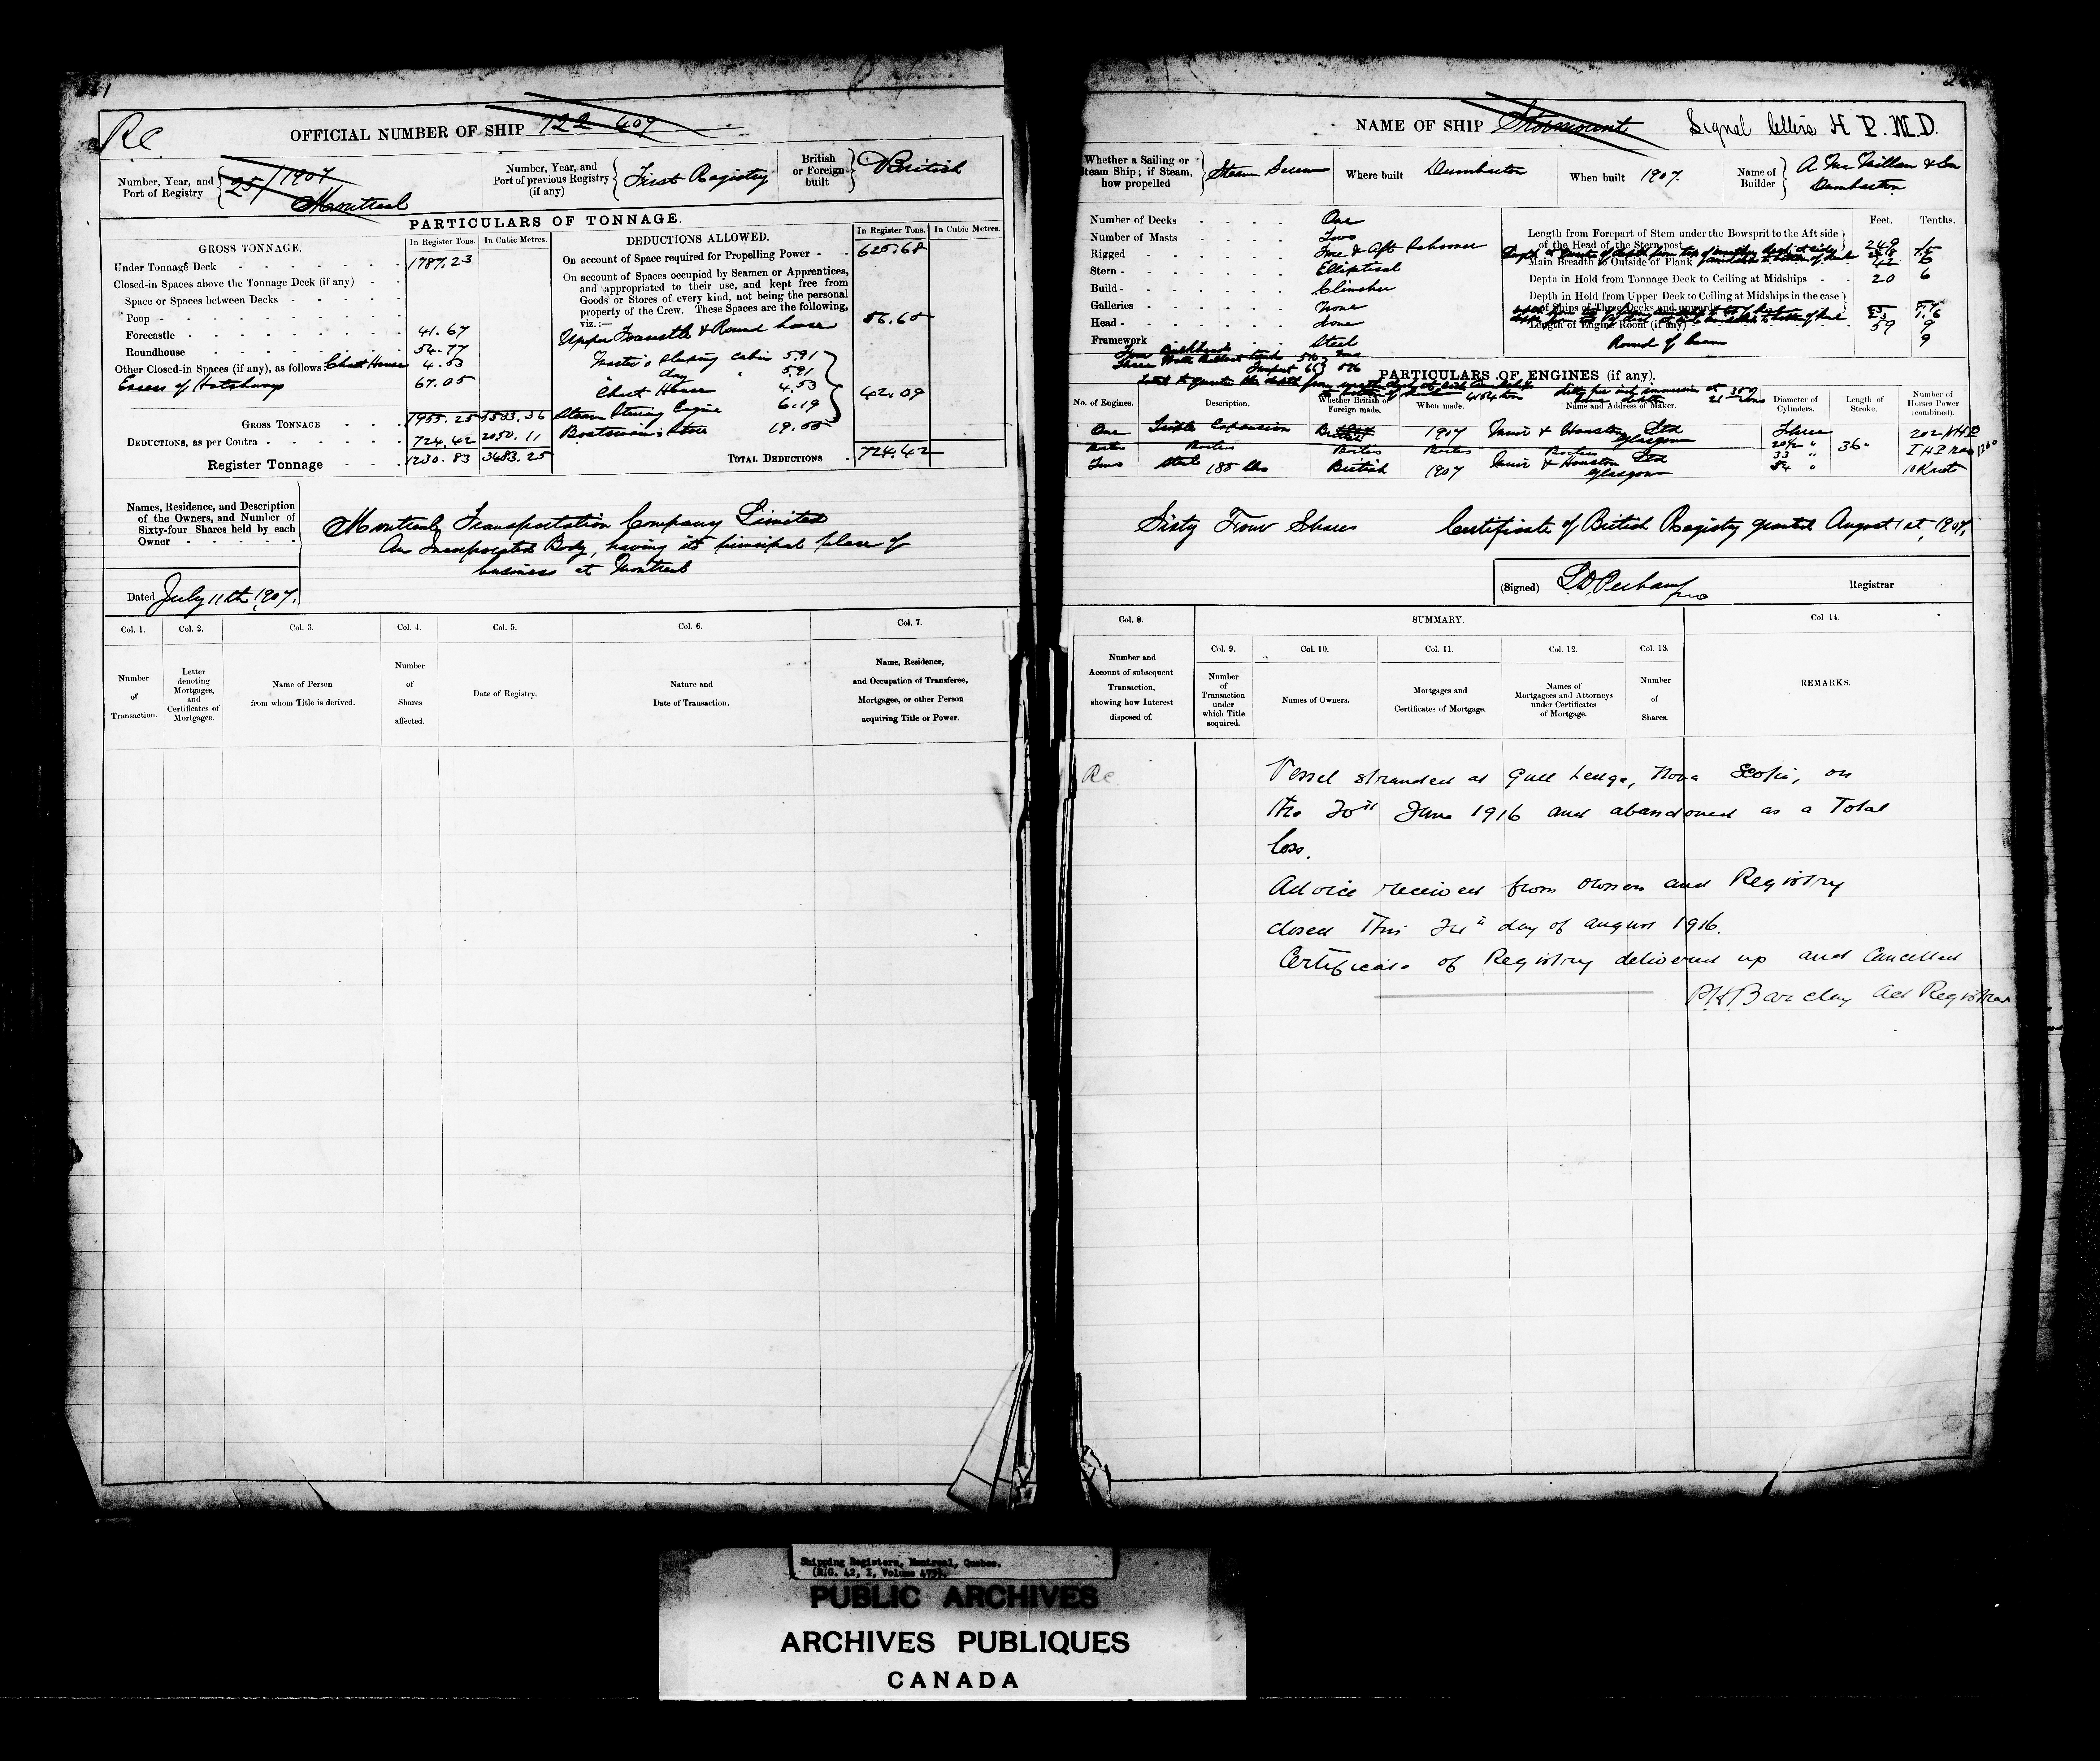 Re.
OFFICIAL NUMBER OF SHIP 122 409
Number, Year, and Port of Registry 25/1907 Montreal
Number, Year, and Port of previous Registry (if any) First Registry
British or Foreign built British
PARTICULARS OF TONNAGE.
GROSS TONNAGE.
In Register Tons. In Cubic Metres.
Under Tonnage Deck 1787.23
Closed-in Spaces above the Tonnage Deck (if any)
Space or Spaces between Decks
Poop
Forecastle 41.67
Roundhouse 54.77
Other Closed-in Spaces (if any), as follows: Chart House 4.53
Excess of Hatchways 67.05
GROSS TONNAGE 1955.25 5533.36
DEDUCTIONS, as per Contra 724.42 2050.11
Register Tonnage 1230.83 3483.25
DEDUCTIONS ALLOWED.
In Register Tons. In Cubic Metres.
On account of Space required for Propelling Power 625.68
On account of Spaces occupied by Seamen or Apprentices,
and appropriated to their use, and kept free from
Goods or Stores of every kind, not being the personal
property of the Crew. These Spaces are the following,
viz.:—
Upper Forecastle & Round house 56.65
Master's sleeping cabin 5.91
" day " 5.91
Chart House 4.53
Steam Steering Engine 6.19
Boatswain's Store 19.55
42.09
TOTAL DEDUCTIONS 724.42
Names, Residence, and Description
of the Owners, and Number of
Sixty-four Shares held by each
Owner
Montreal Transportation Company Limited
An Incorporated Body, having its principal place of
business at Montreal
Dated July 11th 1907.
Col. 1. Col. 2. Col. 3. Col. 4. Col. 5. Col. 6. Col. 7.
Number of Transaction.
Letter denoting Mortgages, and Certificates of Mortgages.
Name of Person from whom Title is derived.
Number of Shares affected.
Date of Registry.
Nature and Date of Transaction.
Name, Residence, and Occupation of Transferee, Mortgagee, or other Person acquiring Title or Power.
NAME OF SHIP Stormount Signal letters H P. M. D.
Whether a Sailing or Steam Ship; if Steam, how propelled Steam Screw
Where built Dumbarton
When built 1907.
Name of Builder A McMillan & Son Dumbarton
Number of Decks One
Number of Masts Two
Rigged Fore & Aft Schooner
Stern Elliptical
Build Clincher
Galleries None
Head None
Framework Steel
Feet. Tenths.
Length from Forepart of Stem under the Bowsprit to the Aft side
of the Head of the Stern post 249
Main Breadth to Outside of Plank 42
Depth in Hold from Tonnage Deck to Ceiling at Midships 20 6
Depth in Hold from Upper Deck to Ceiling at Midships in the case
of Ships of Three Decks and upwards
Length of Engine Room (if any) 59 9
Round of beam 9
PARTICULARS OF ENGINES (if any).
No. of Engines. Description. Whether British or Foreign made. When made. Name and Address of Maker. Diameter of Cylinders. Length of Stroke. Number of Horses Power (combined).
One Triple Expansion British 1907 Muir & Houston Ltd Glasgow Three 20½ " 33 " 54 " 36" 202 NHP
Boilers Boilers Boilers Boilers Boilers
Two Steel 185 lbs British 1907 Muir & Houston Ltd Glasgow 10 Knots
Sixty Four Shares Certificate of British Registry granted August 1st, 1907.
(Signed) Registrar
Col. 8. SUMMARY. Col 14.
Col. 9. Col. 10. Col. 11. Col. 12. Col. 13.
Number and Account of subsequent Transaction, showing how Interest disposed of.
Number of Transaction under which Title acquired.
Names of Owners.
Mortgages and Certificates of Mortgage.
Names of Mortgagees and Attorneys under Certificates of Mortgage.
Number of Shares.
REMARKS.
Re. Vessel stranded at Gull Ledge, Nova Scotia, on
the 20th June 1916 and abandoned as a Total
loss.
Advice received from owners and Registry
closed This 24th day of august 1916.
Certificate of Registry delivered up and Cancelled
Barclay Act Registrar
Shipping Registers, Montreal, Quebec.
(R.G. 42, I, Volume 475).
PUBLIC ARCHIVES
ARCHIVES PUBLIQUES
CANADA